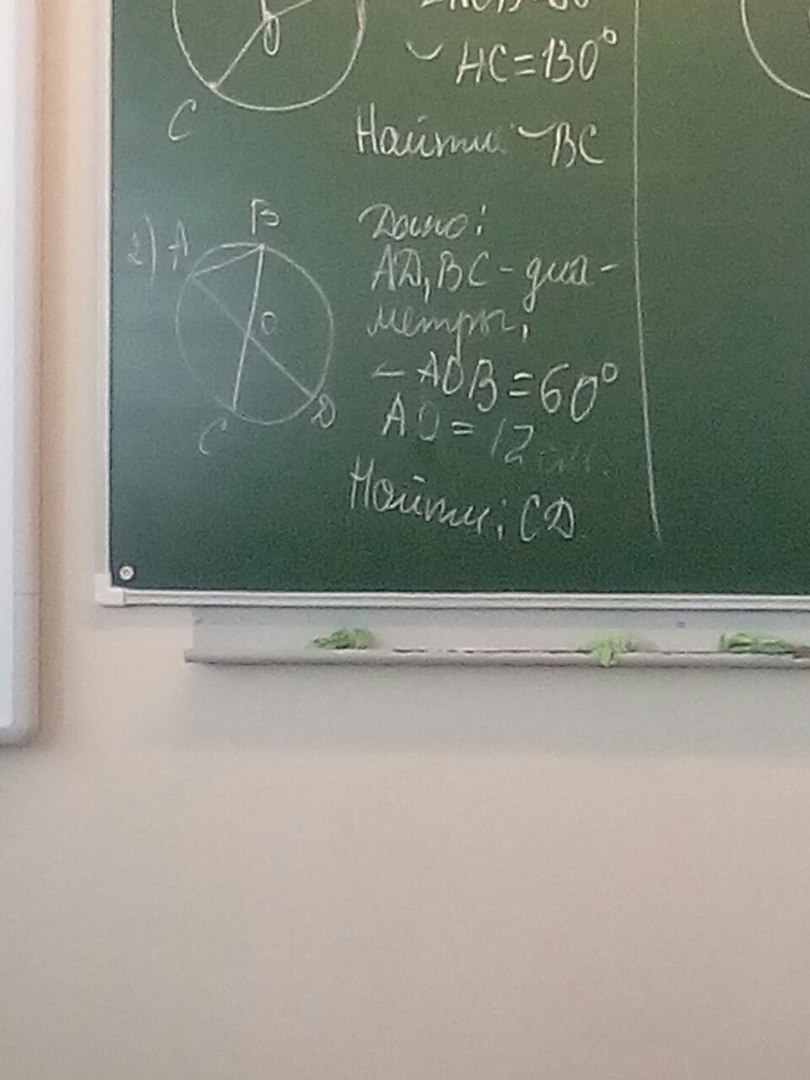 C
⌣ AC=130°
Найти: ⌣BC
2) A B
O
C D
Дано:
AD, BC - диа-
метры,
∠AOB=60°
AO=12см.
Найти: CD